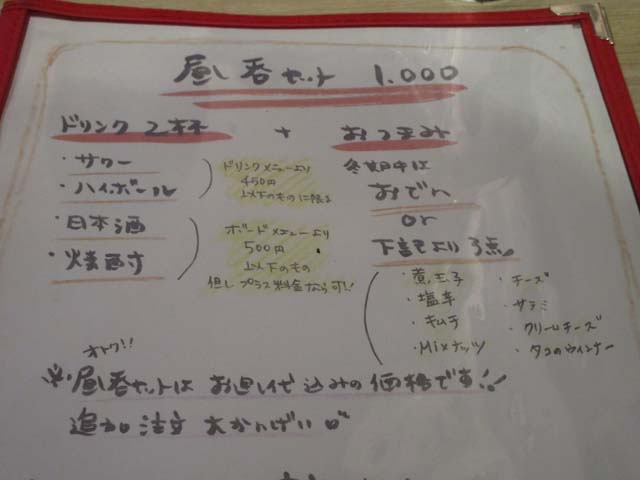 昼呑セット 1.000
ドリンク 2杯 + おつまみ
・サワー
・ハイボール
ドリンクメニューより
450円
以下のものに限る
・日本酒
・焼酎
ボードメニューより
500円
以下のもの
但しプラス料金なら可!!
冬期中は
おでん
or
下記より3点
・煮玉子
・塩辛
・キムチ
・Mixナッツ
・チーズ
・サラミ
・クリームチーズ
・タコのウインナー
オトク!!
※昼呑セットは お通し代込みの価格です!!
追加注文 大かんげい